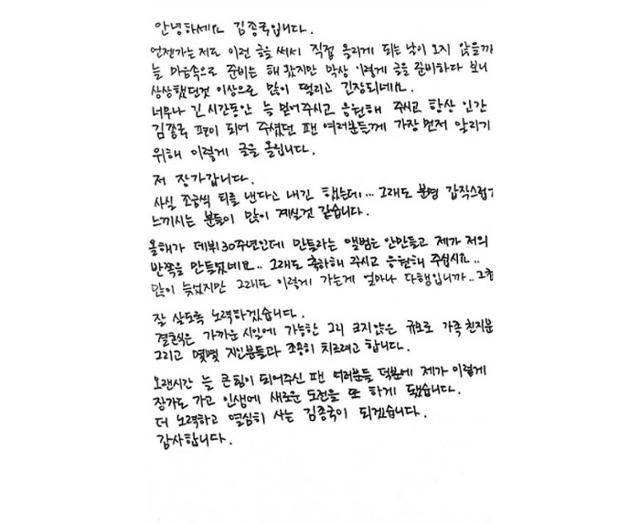 안녕하세요 김종국입니다.
언젠가는 저도 이런 글을 써서 직접 올리게 되는 날이 오지 않을까
늘 마음속으로 준비는 해 왔지만 막상 이렇게 글을 준비하다 보니
상상했던것 이상으로 많이 떨리고 긴장되네요.
너무나 긴 시간동안 늘 믿어주시고 응원해 주시고 항상 인간
김종국 편이 되어 주셨던 팬 여러분들께 가장 먼저 알리기
위해 이렇게 글을 올립니다.
저 장가갑니다.
사실 조금씩 티를 낸다고 내긴 했는데... 그래도 분명 갑작스럽고
느끼시는 분들이 많이 계실것 같습니다.
올해가 데뷔30주년인데 만들라는 앨범은 안만들고 제가 저의
반쪽을 만들었네요.. 그래도 축하해 주시고 응원해 주십시요..
많이 늦었지만 그래도 이렇게 가는게 얼마나 다행입니까.. 그쵸
잘 살도록 노력하겠습니다.
결혼식은 가까운 시일에 가능한 그리 크지않은 규모로 가족 친지분
그리고 몇몇 지인분들과 조용히 치르려고 합니다.
오랜시간 늘 큰힘이 되어주신 팬 여러분들 덕분에 제가 이렇게
장가도 가고 인생에 새로운 도전을 또 하게 됐습니다.
더 노력하고 열심히 사는 김종국이 되겠습니다.
감사합니다.